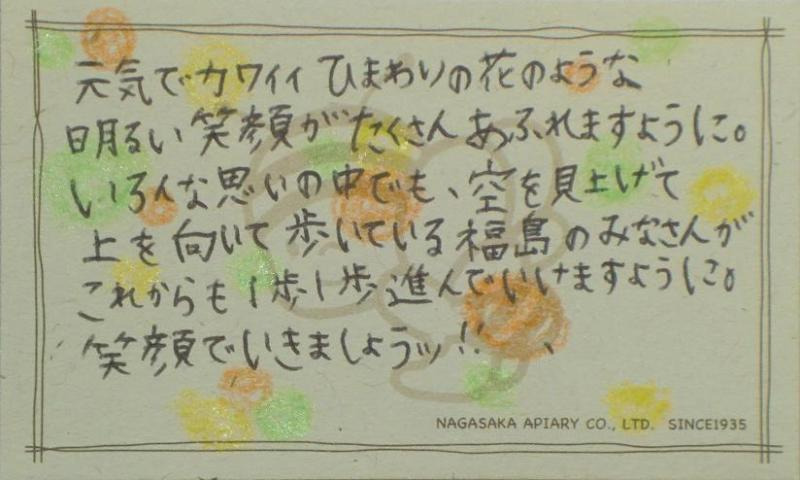 元気でカワイイ ひまわりの花のような
明るい笑顔がたくさんあふれますように。
いろんな思いの中でも、空を見上げて
上を向いて歩いている福島のみなさんが
これからも1歩1歩進んでいけますように。
笑顔でいきましょうッ!!
NAGASAKA APIARY CO., LTD. SINCE1935